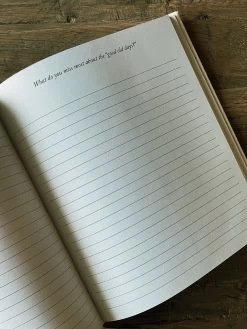 What do you miss most about the "good old days?"